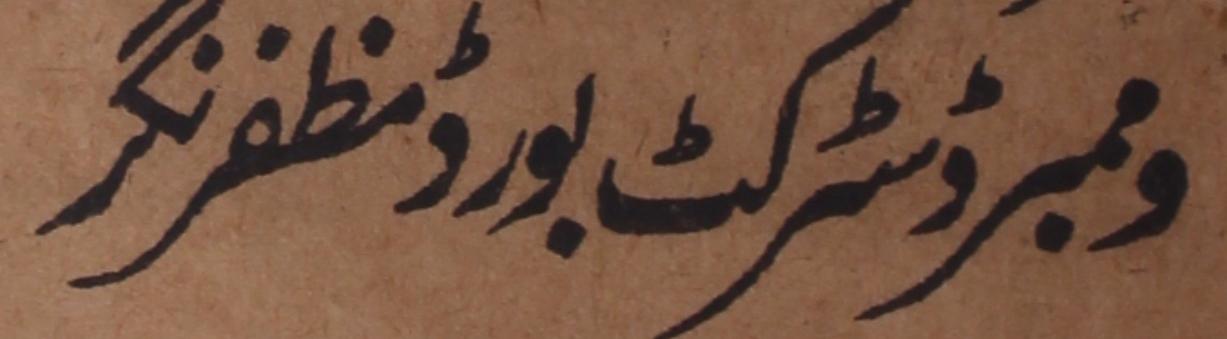 وممبر ڈسٹرکٹ بورڈ مظفر نگر